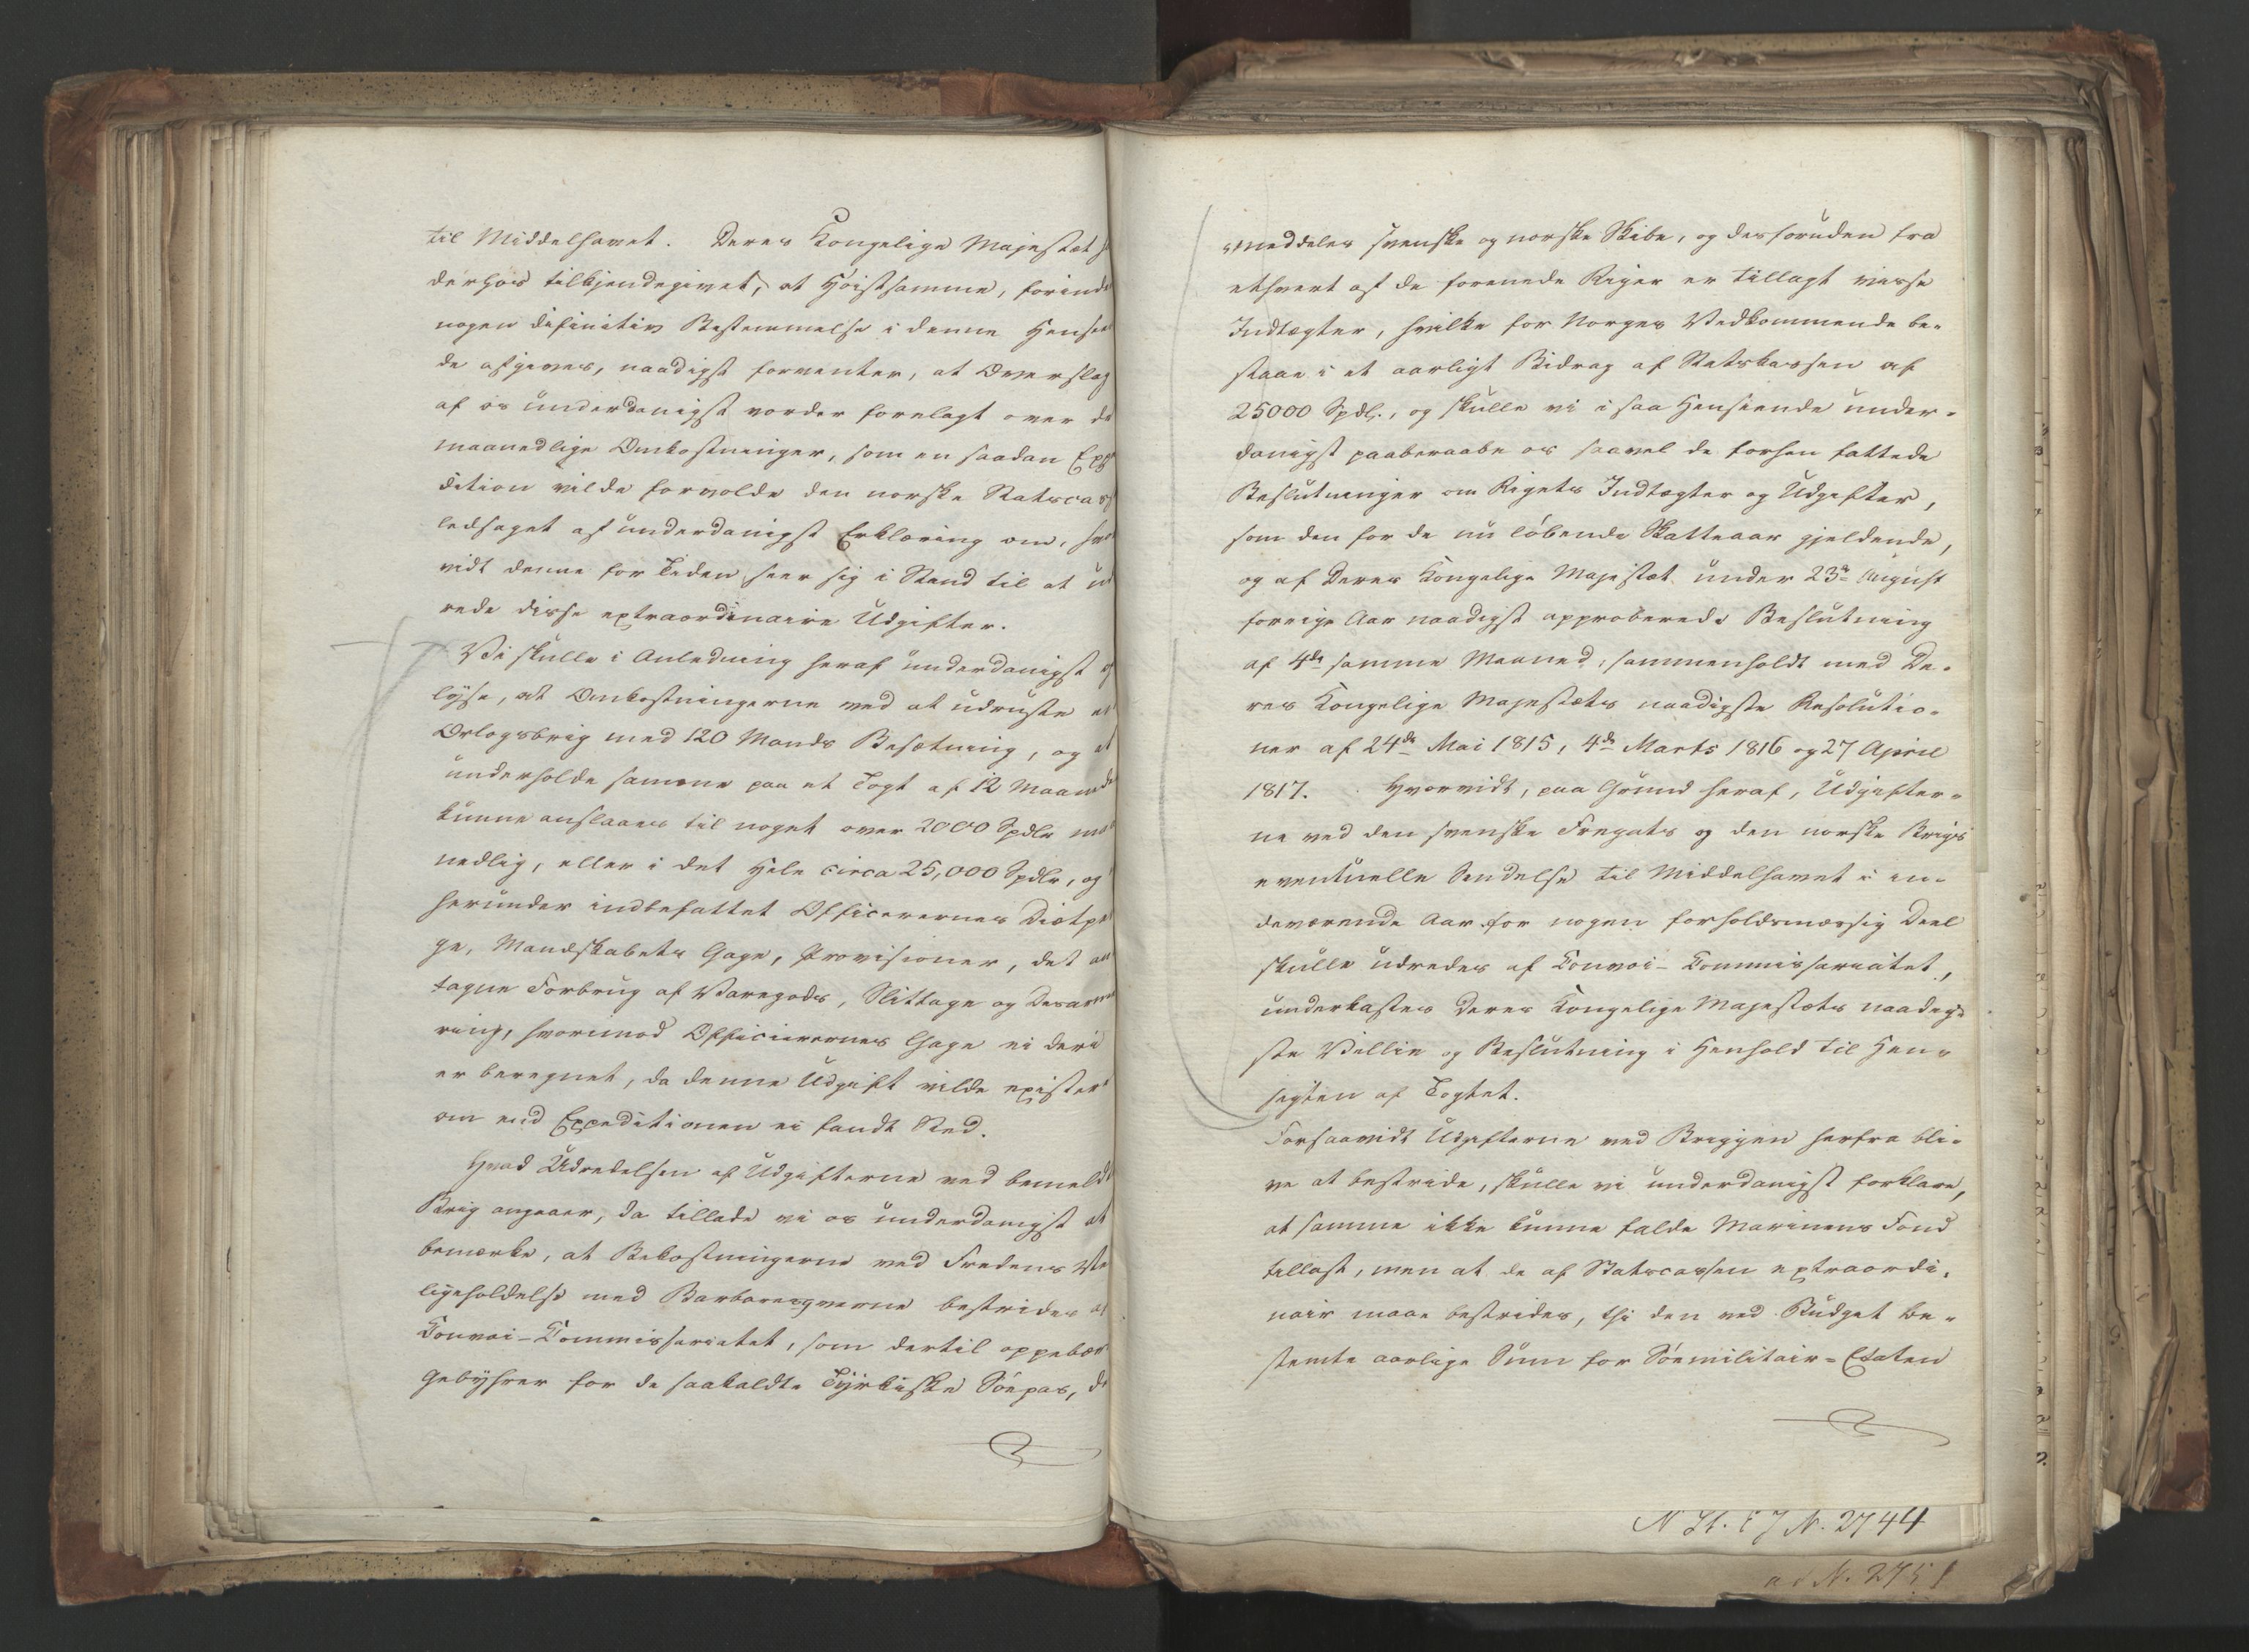 til Middelhavet. Deres Kongelige Majestæt h
derhos tilkjendegivet, at Høistsamme, forinde
nogen definitiv Bestemmelse i denne Hensee
de afgives, naadigst forventer, at Overslag
af os underdanigst vorder forelagt over de
maanedlige Omkostninger, som en saadan Expe
dition vilde forvolde den norske Statscass
ledsaget af underdanigst Erklæring om, hvo
vidt denne for Tiden seer sig i Stand til at ud
rede disse extraordinaire Udgifter.
Vi skulle i Anledning heraf underdanigst op
lyse, at Omkostningerne ved at udruste et
Orlogsbrig med 120 Mands Besætning, og at
underholde samme paa et Togt af 12 Maaneder
kunne anslaaes til noget over 2000 Spdlr maa
nedlig, eller i det Hele circa 25,000 Spdlr, og
herunder indbefattet Officerernes Diætpe
ge, Mandskabets Gage, Provisioner, det an
tagne Forbrug af Varegods, Slittage og Desarme
ring, hvorimod Officierernes Gage ei deri
er beregnet, da denne Udgift vilde existere
om end Expeditionen ei fandt Sted.
Hvad Udredelsen af Udgifterne ved bemeldte
Brig angaaer, da tillade vi os underdanigst at
bemærke, at Bekostningerne ved Fredens Ve
ligeholdelse med Barbaresqverne bestrides af
Convoi-Commissariatet, som dertil oppebær
Gebyhrer for de saakaldte Tyrkiske Søepas, de
meddeles svenske og norske Skibe, og desforuden fra
ethvert af de forenede Riger er tillagt visse
Indtægter, hvilke for Norges Vedkommende be-
staae i et aarligt Bidrag af Statskassen af
25000 Spdl., og skulle vi i saa Henseende under-
danigst paaberaabe os saavel de forhen fattede
Beslutninger om Rigets Indtægter og Udgifter,
som den for de nu løbende Skatteaar gjeldende,
og af Deres Kongelige Majestæt under 23de August
forrige Aar naadigst approberede Beslutning
af 4de samme Maaned, sammenholdt med De-
res Kongelige Majestæts naadigste Resolutio-
ner af 24de Mai 1815, 4de Marts 1816 og 27 April
1817. Hvorvidt, paa Grund heraf, Udgifter-
ne ved den svenske Fregats og den norske Brigs
eventuelle Sendelse til Middelhavet i in-
deværende Aar for nogen forholdsmæssig Deel
skulle udredes af Convoi-Commissariatet,
underkastes Deres Kongelige Majestæts naadig-
ste Villie og Beslutning i Henhold til Hen-
sigten af Togtet.
Forsaavidt Udgifterne ved Briggen herfra bli-
ve at bestride, skulle vi underdanigst forklare,
at samme ikke kunne falde Marinens Fond
tillast, men at de af Statscassen extraordi-
nair maae bestrides, thi den ved Budget be-
stemte aarlige Sum for Søemilitair-Etaten
N. 2744
ad N. 2751